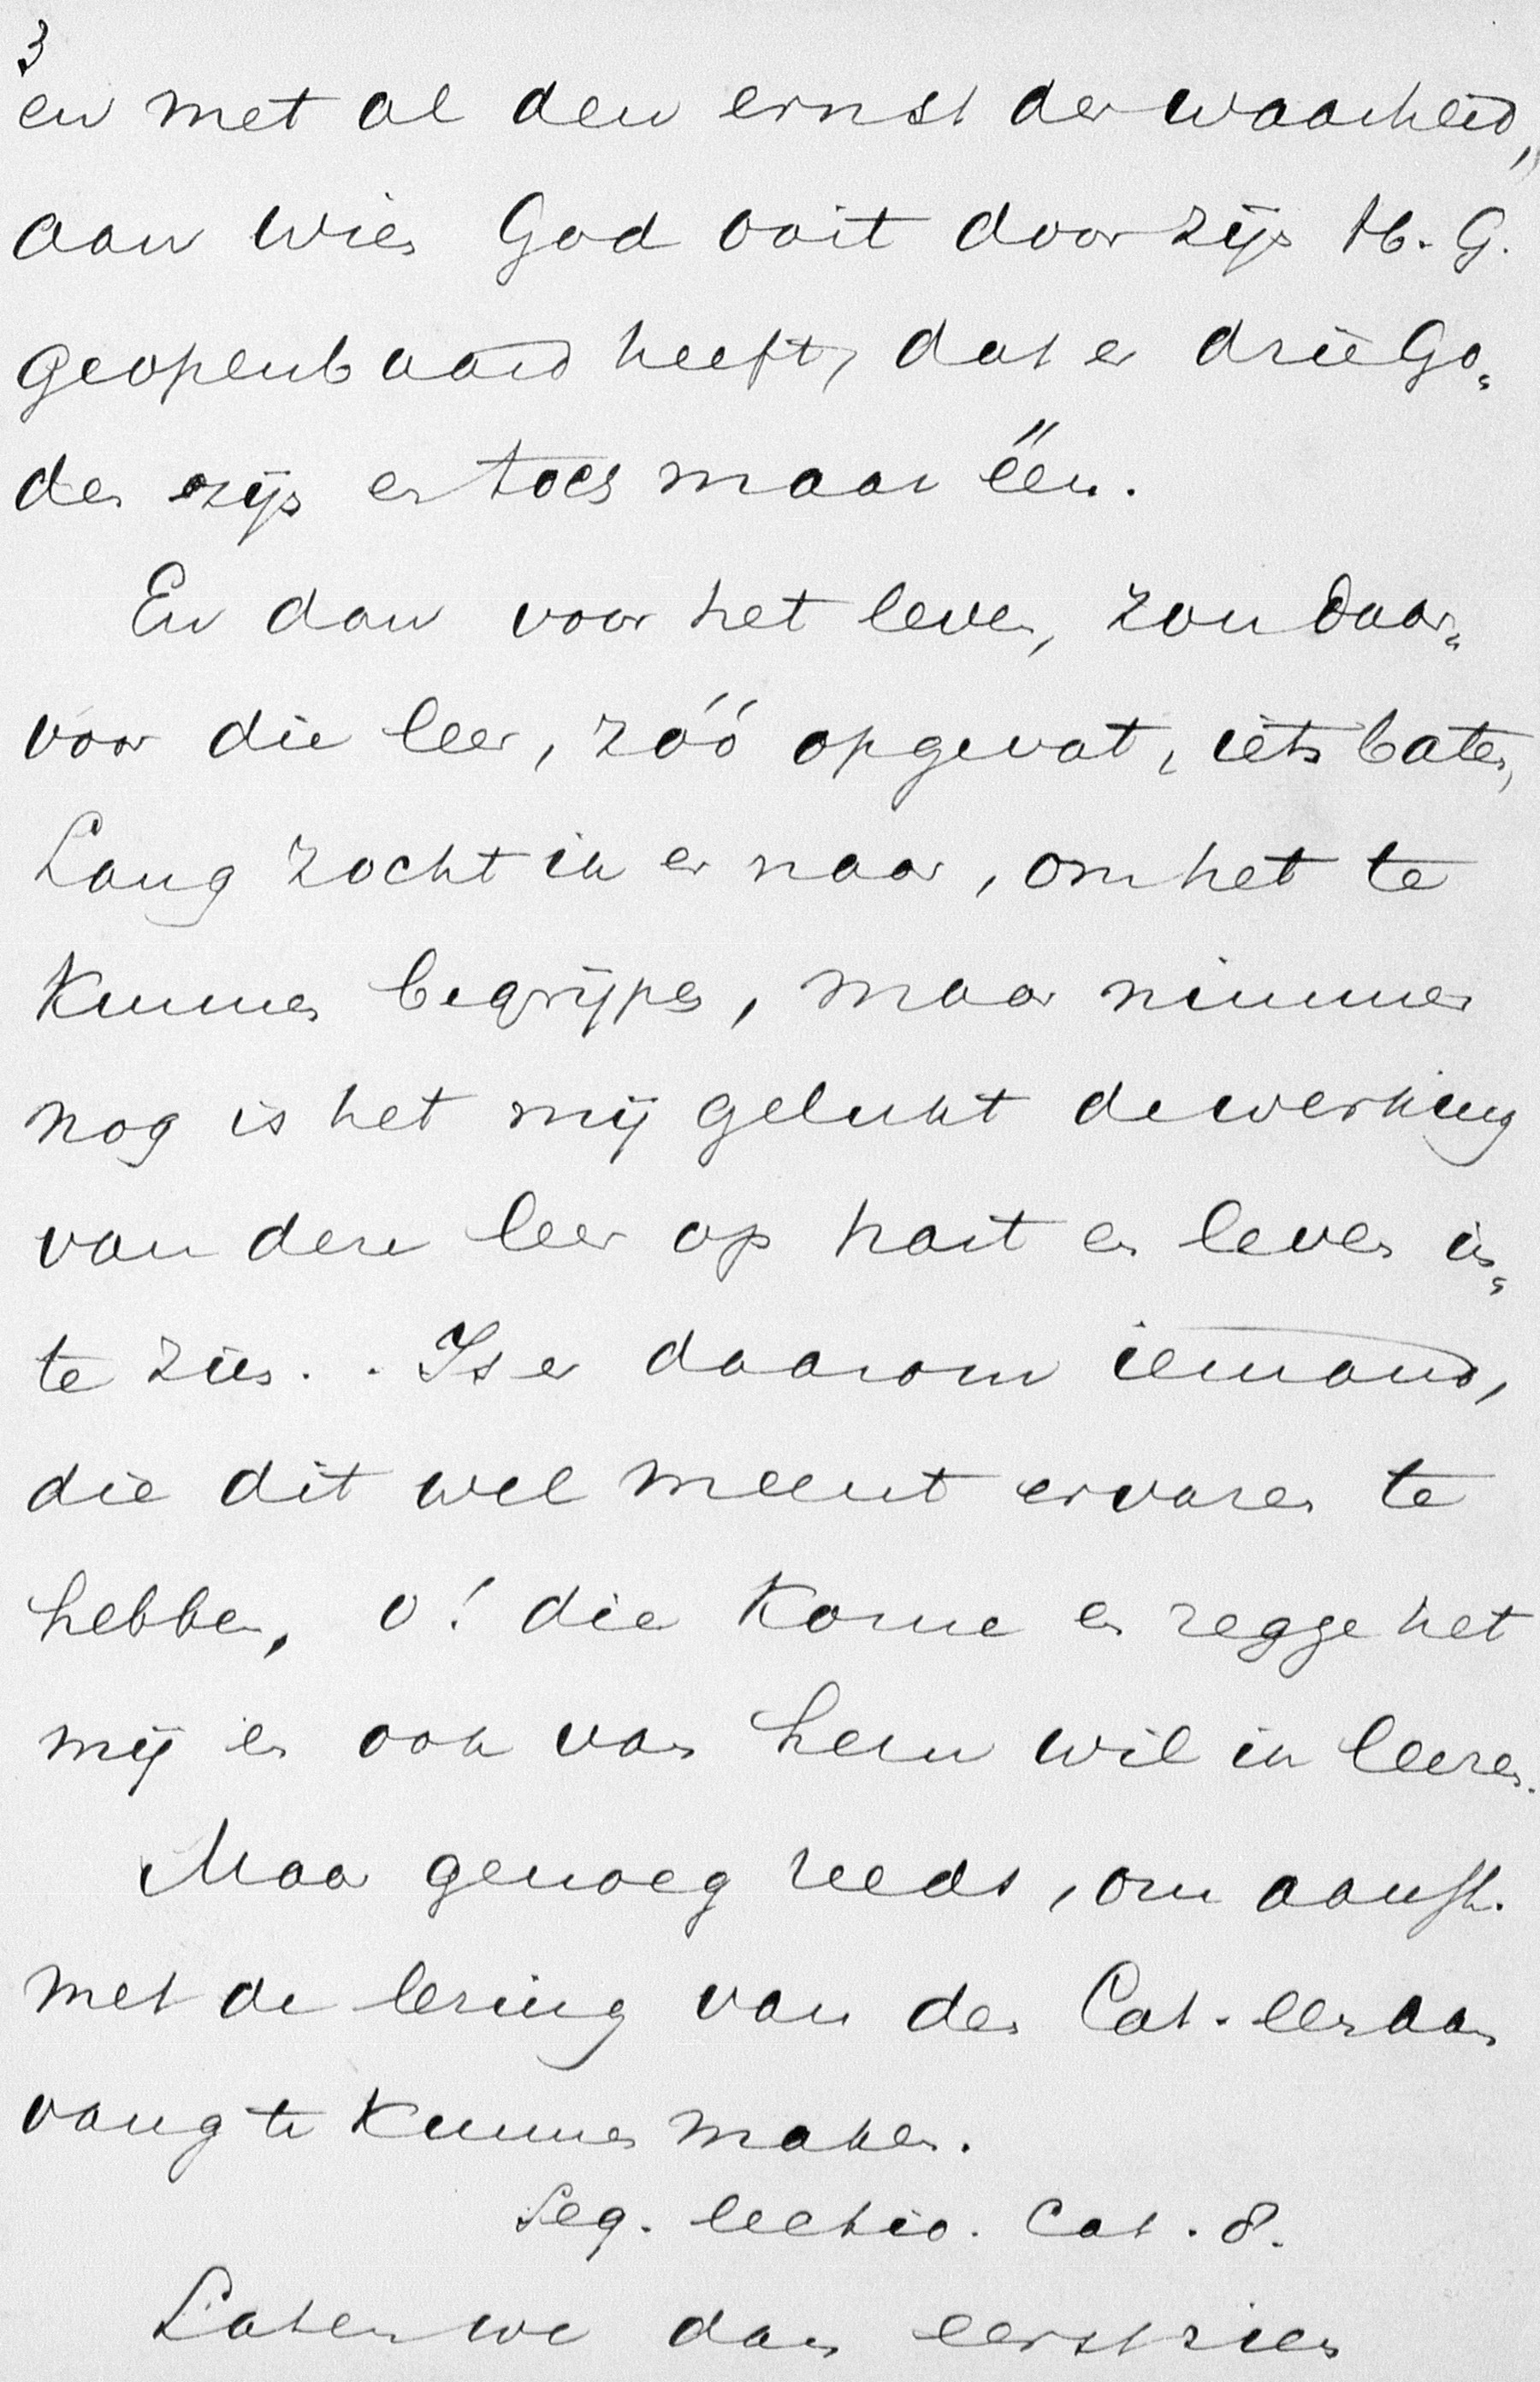 3
en met al den ernst der waarheid,
aan wien God ooit door zijn H. G.
geopenbaard heeft, dat er drie Go„
den zijn en toch maar één.
En dan voor het leven, zou daar„
voor die leer, zóó opgevat, iets baten,
Lang zocht ik er naar, om het te
kunnen begrijpen, maar nimmer
nog is het mij gelukt de werking
van deze leer op hart en leven in„
te zien. Is er daarom iemand,
die dit wel meent ervaren te
hebben, o! die kome en zegge het
mij en ook van hem wil ik leeren.
Maar genoeg reeds, om aanst.
met de lezing van den Cat. een aan
vang te kunnen maken.
Seq. lectio. Cat. 8.
Laten we dan eerst zien